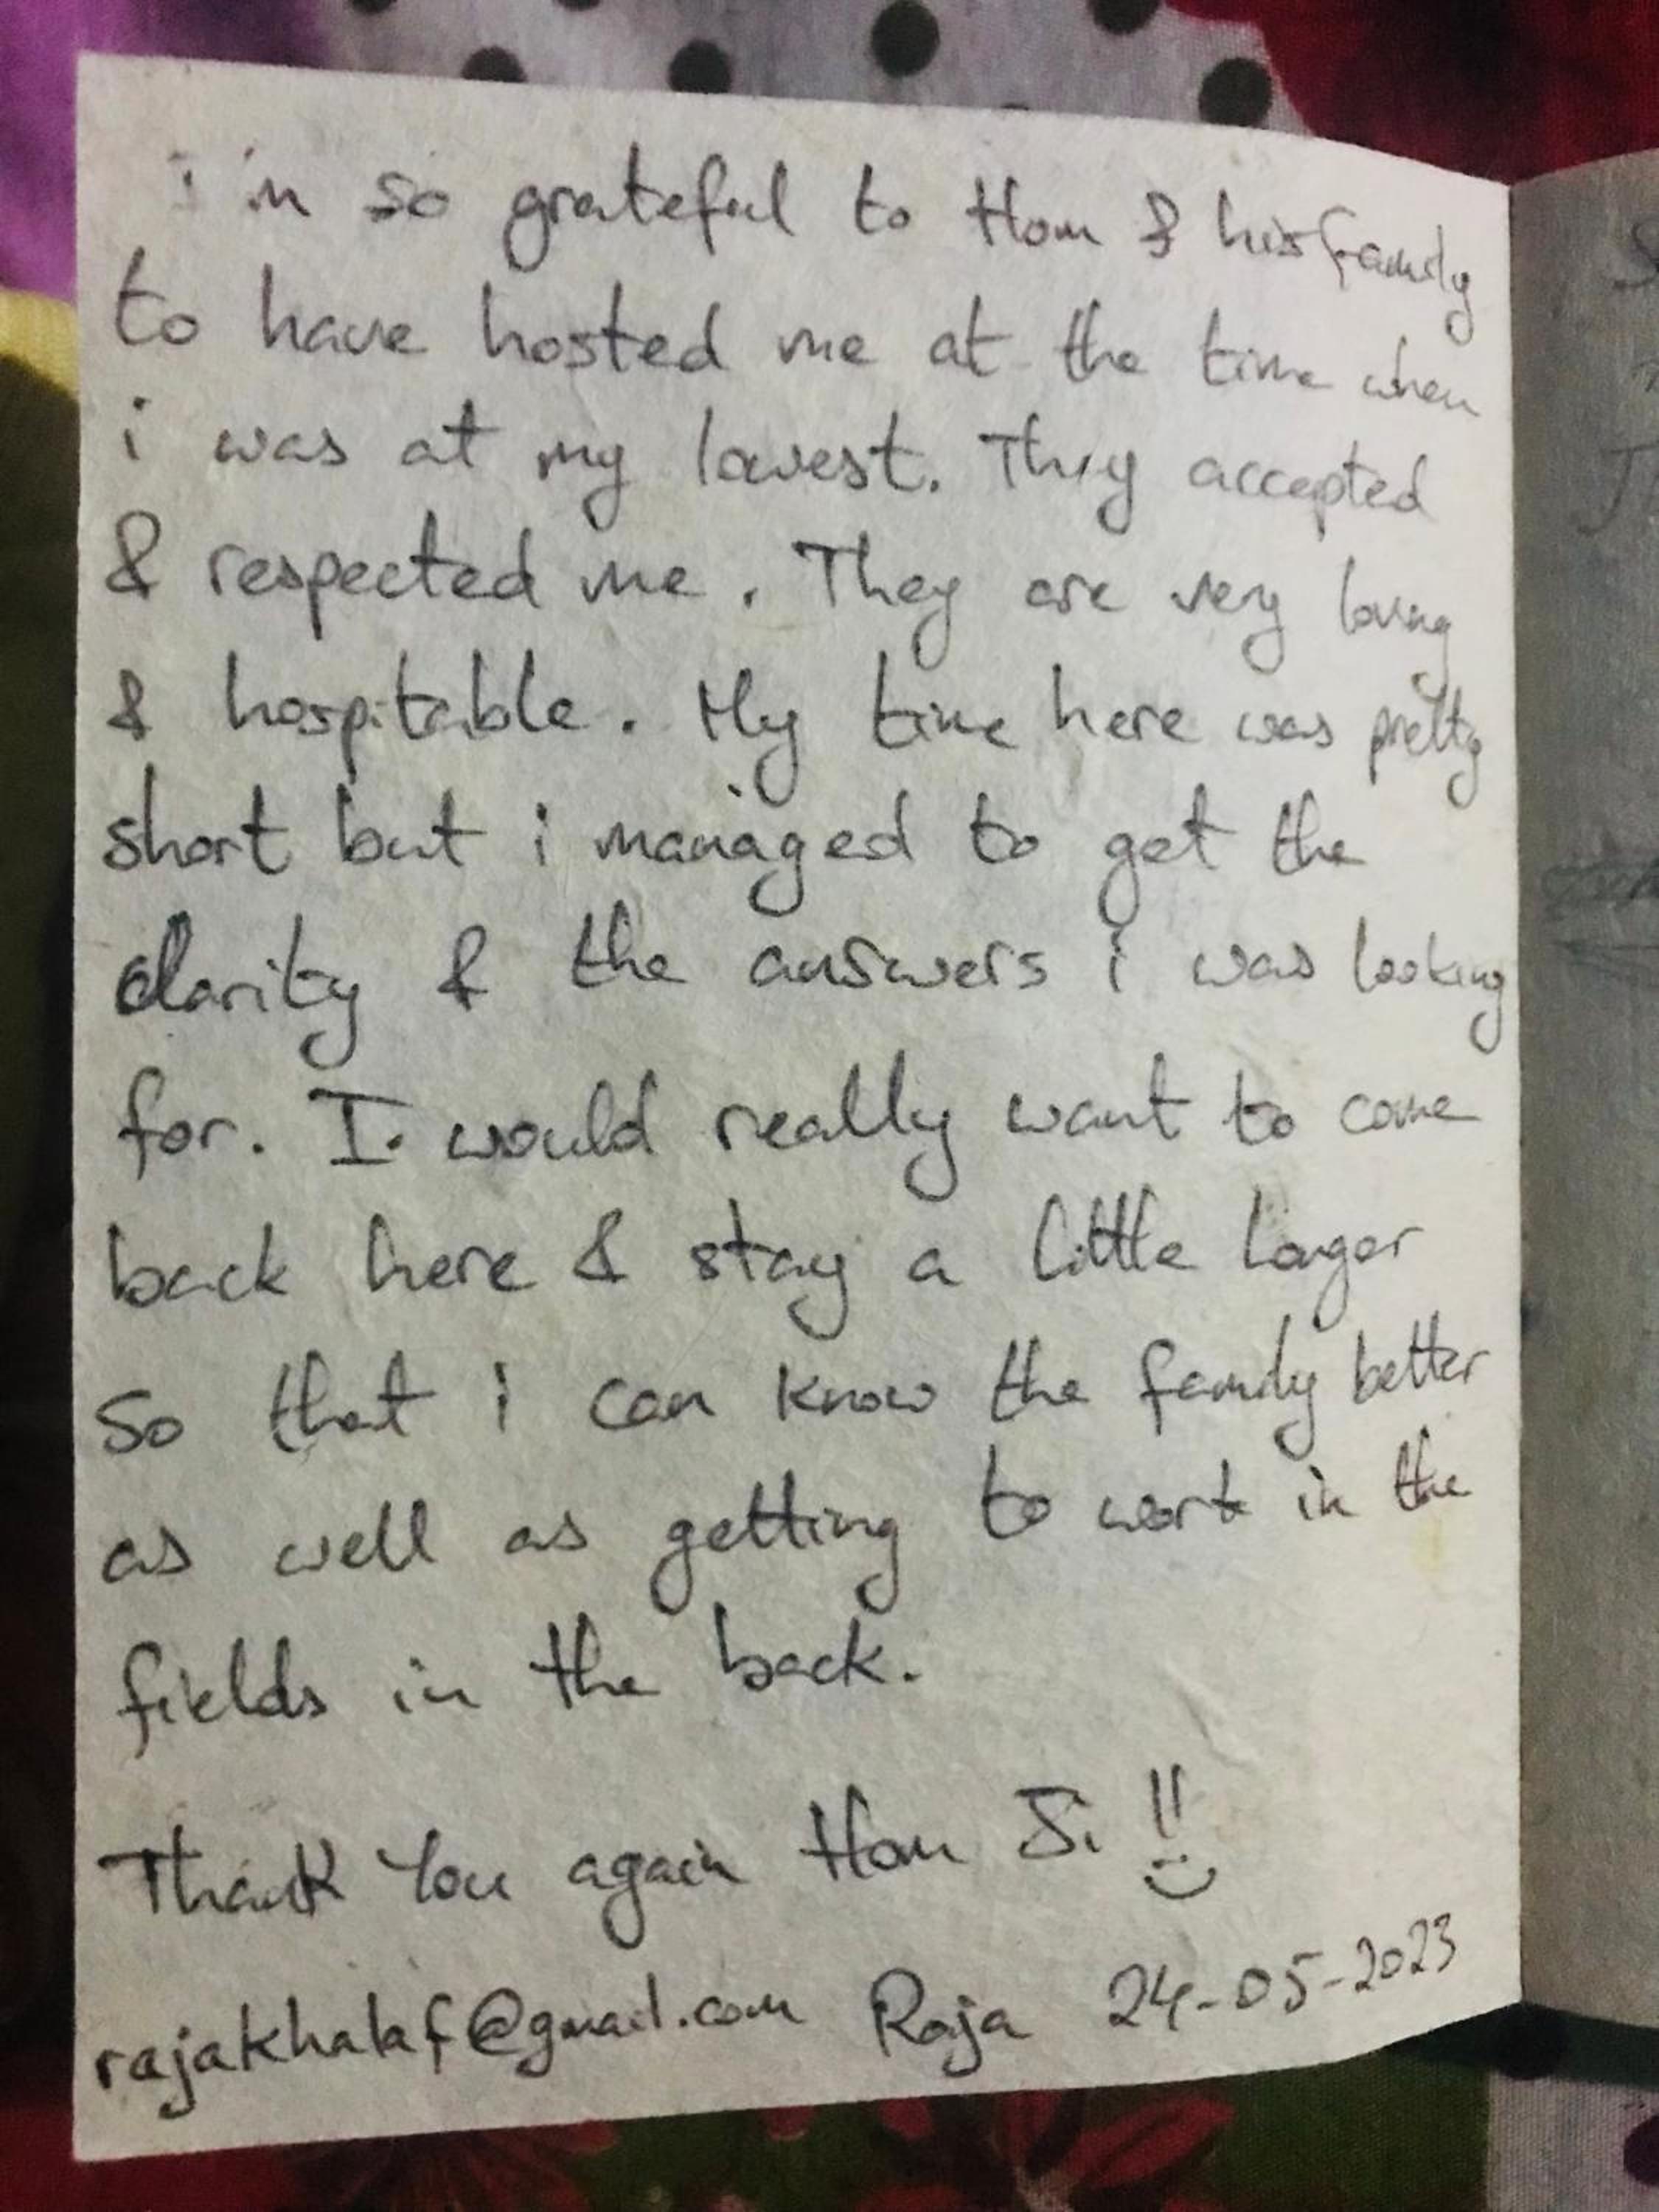 i'm so grateful to Hom & his family
to have hosted me at the time when
i was at my lowest. They accepted
& respected me. They are very loving
& hospitable. My time here was pretty
short but i managed to get the
clarity & the answers i was looking
for. I would really want to come
back here & stay a little longer
So that i can know the family better
as well as getting to work in the
fields in the back.
Thank You again Hom Ji !! :)
rajakhalaf@gmail.com Raja 24-05-2023